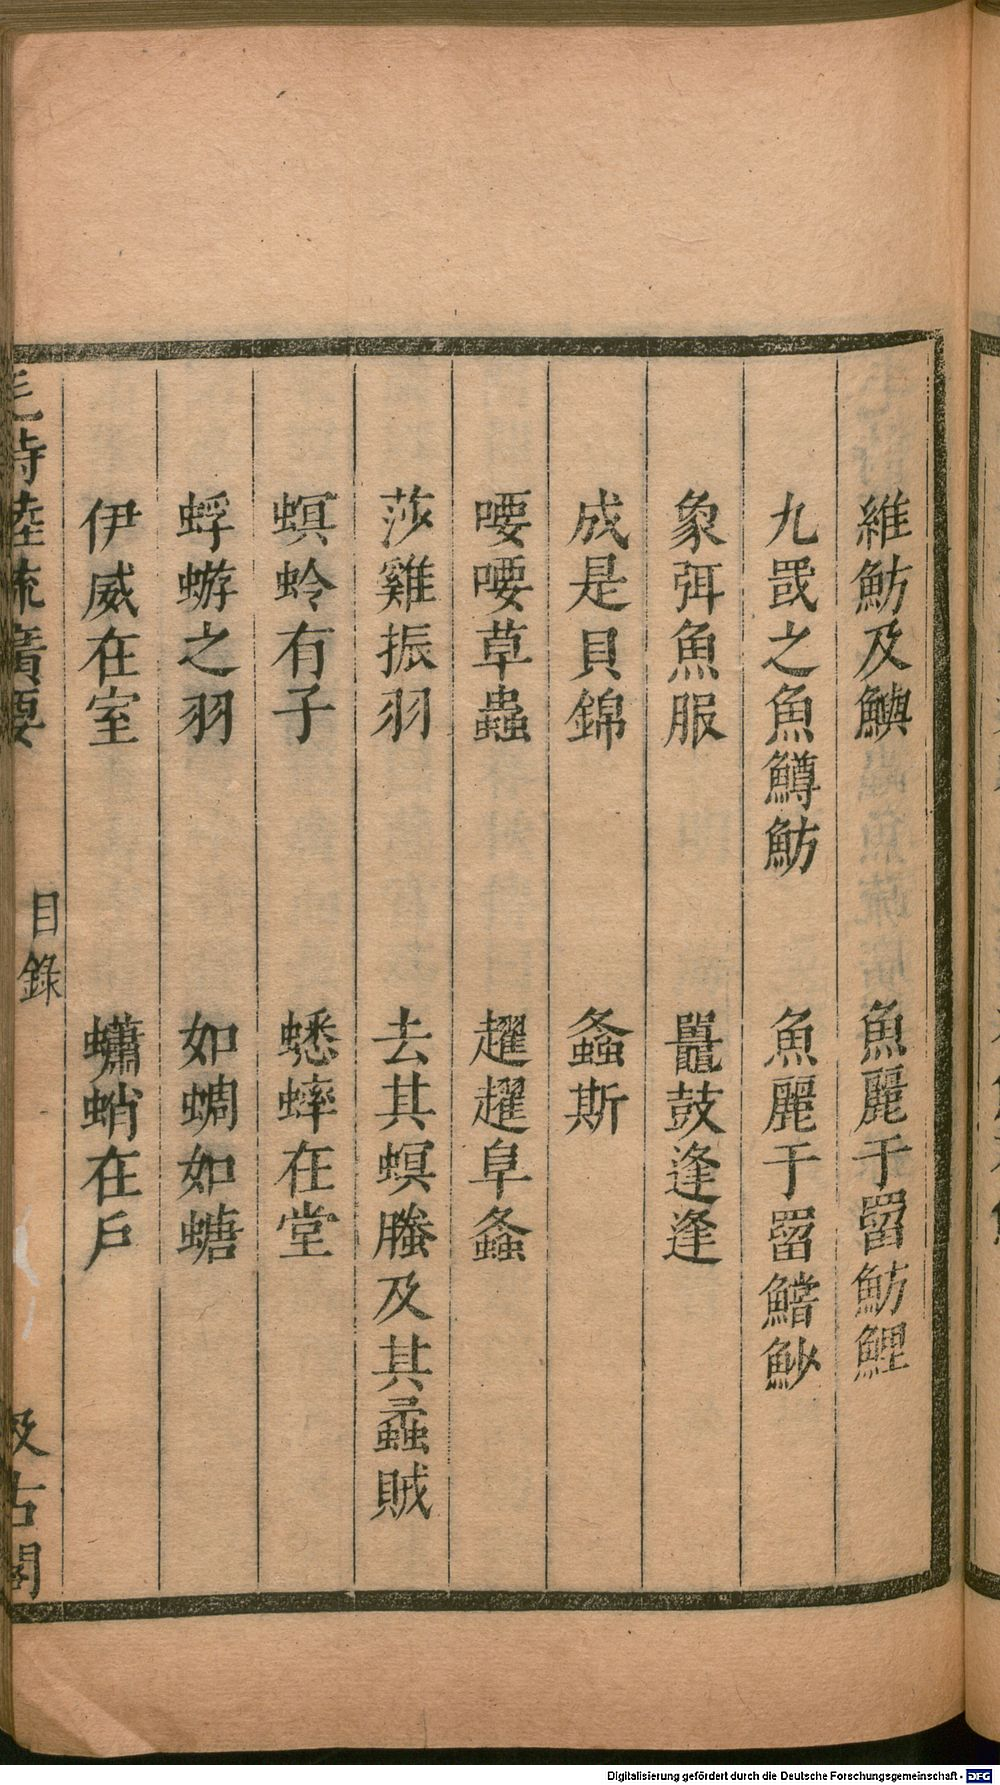 維魴及鱮　魚麗于罶魴鯉
九罭之魚鱒魴　魚麗于罶鱨鯋
象弭魚服　鼉鼓逢逢
成是貝錦　螽斯
喓喓草蟲　趯趯阜螽
莎雞振羽　去其螟螣及其蟊賊
螟蛉有子　蟋蟀在堂
蜉蝣之羽　如蜩如螗
伊威在室　蠨蛸在戶
毛詩陸疏廣要　目錄　汲古閣
Digitalisierung gefördert durch die Deutsche Forschungsgemeinschaft - DFG